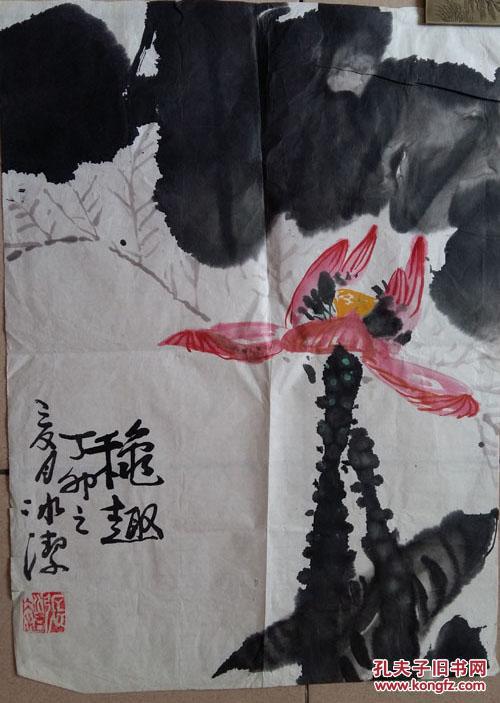 穐趣
丁卯之
夏月冰潔
孔夫子旧书网
www.kongfz.com